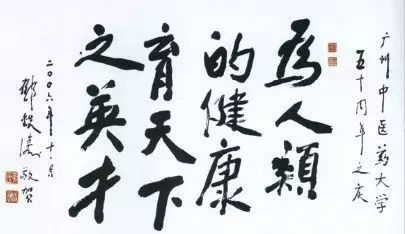 广州中医药大学
五十周年之庆
为人類
的健康
育天下
之英才
二〇〇六年十一月
鄧鉄濤敬贺